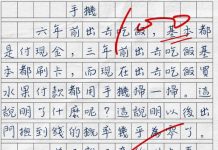 手機
六年前出去吃飯，基本都
是付現金，三年前出去吃飯基
本都刷卡，而現在出去吃飯買
水果付款都用手機掃一掃。這
說明了什麼呢？這說明以後出
門撿到錢的機率幾乎為零了。